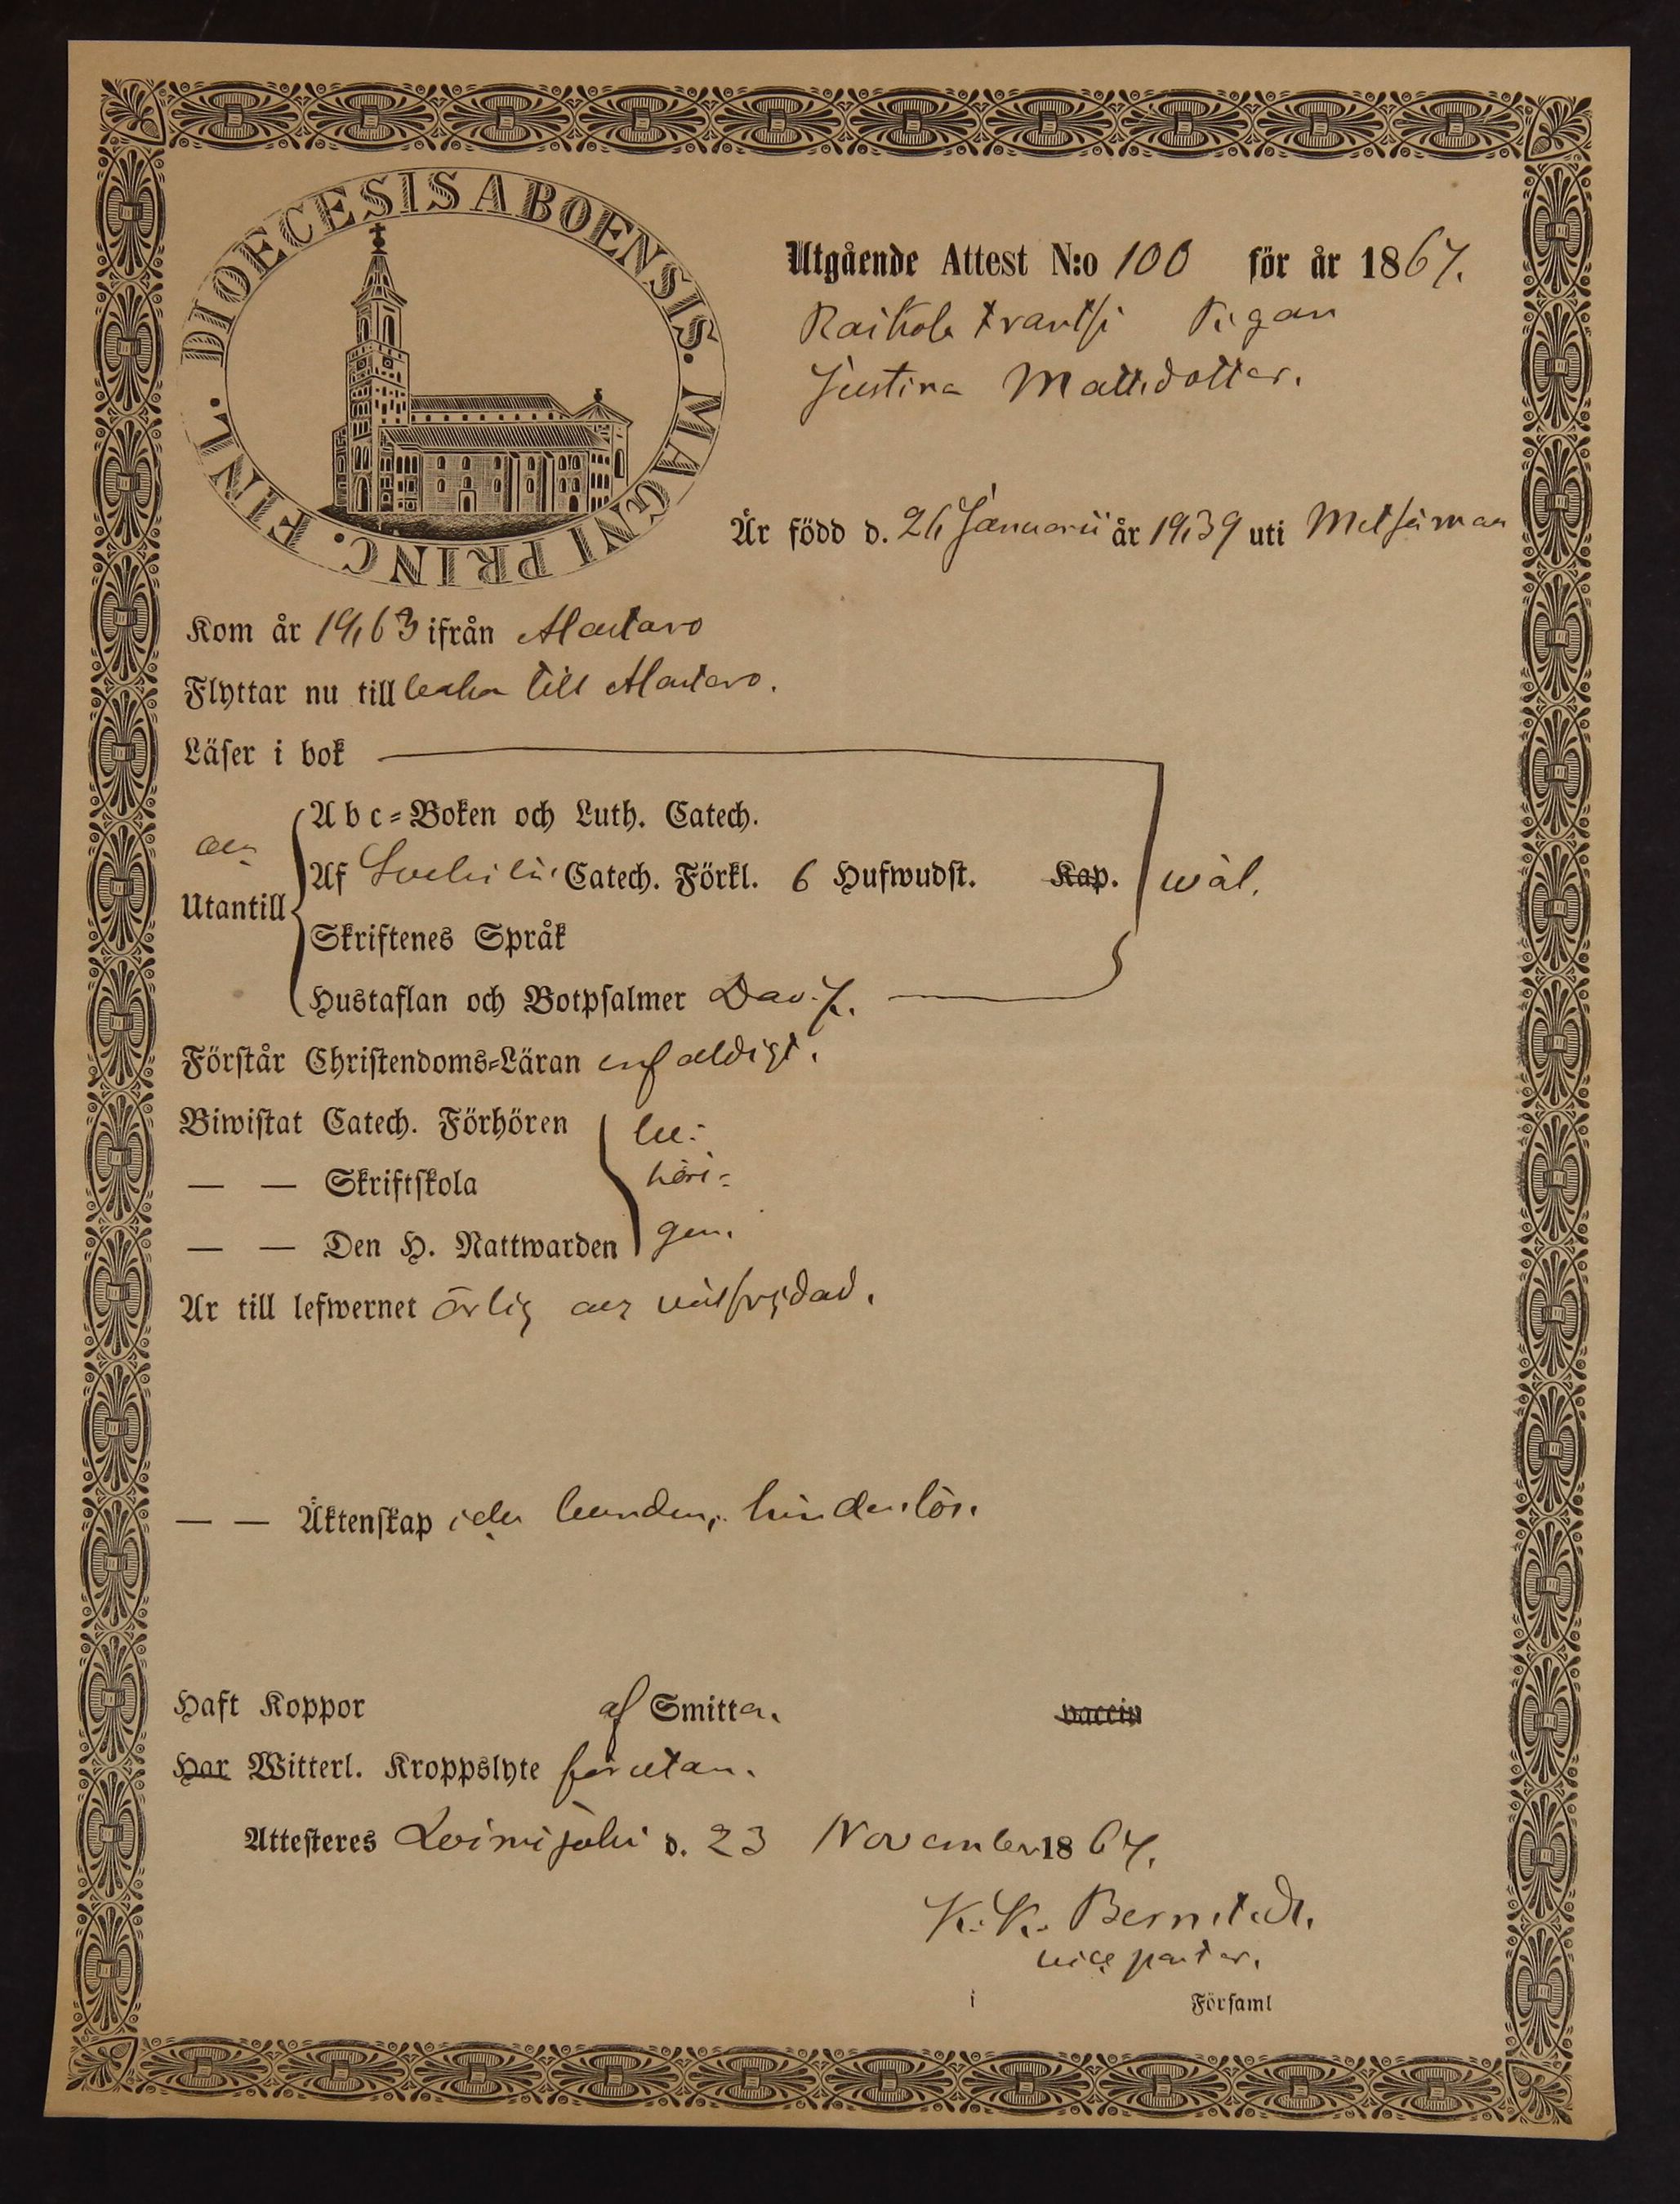 DIOECESIS ABOENSIS. MAGNI PRINC. FINL.
Utgående Attest N:o 100 för år 1867.
Raikola Frantsi Pigan
Justina Mattsdotter.
Är född d. 26 Januarii år 1839 uti Metsämaa
Kom år 1863 ifrån Alastaro
Flyttar nu till baka till Alastaro.
Läser i bok
och
Utantill
Abc-Boken och Luth. Catech.
Af Svebilii Catech. Förkl. 6 Hufwudst. Kap. wäl.
Skriftenes Språk
Hustaflan och Botpsalmer Dav. 7.
Förstår Christendoms-Läran enfaldigt.
Biwistat Catech. Förhören be-
— — Skriftskola höri-
— — Den H. Nattwarden gen.
Är till lefwernet ärlig och välfrejdad.
— — Äktenskap icke bunden, hinderslös.
Haft Koppor af Smitta. vaccin
Har Witterl. Kroppslyte förutan.
Attesteres Loimijoki d. 23 November 1867.
K. K. Bernstedt.
vice pastor.
i Församl